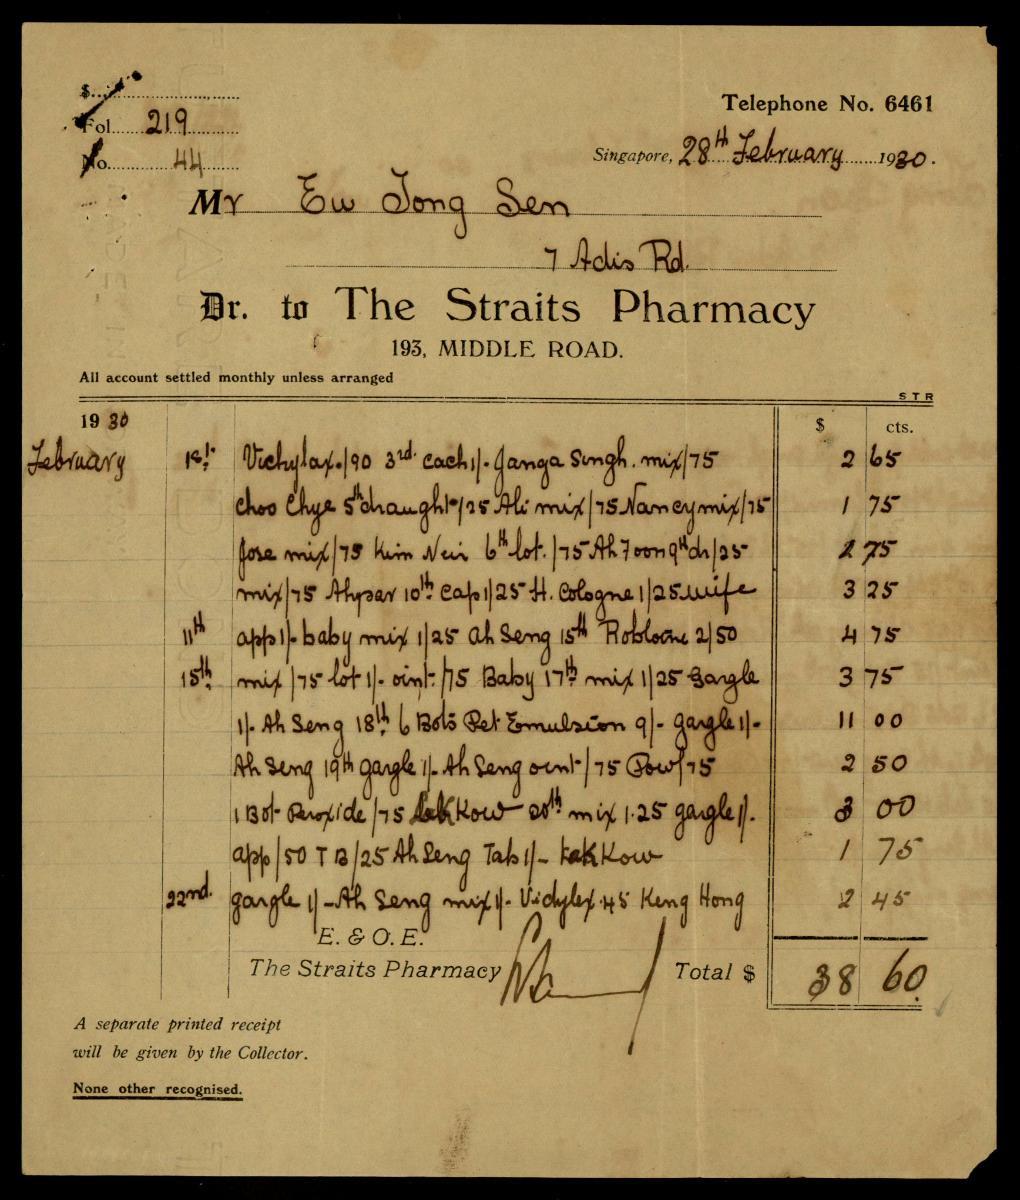 $
Telephone No. 6461
Fol. 219
Singapore, 28th February 1930.
No. 44
Mr Eu Tong Sen
7 Adis Rd.
Dr. to The Straits Pharmacy
193, MIDDLE ROAD.
All account settled monthly unless arranged
STR
1930 $ cts.
February 1st Vichylax./90 3rd. cach 1/- Ganga Singh. mix/75 2 65
Choo Chye 5th draught/25 Ali mix/75 Nancy mix/75 1 75
Jose mix/75 Kim Neir 6th lot./75 Ah Foon 9th dr/25 2 75
mix/75 10th cap 1/25 H. Cologne 1/25 wife 3 25
11th app 1/- baby mix 1/25 Ah Seng 15th 2/50 4 75
15th mix/75 lot 1/- oint./75 Baby 17th mix 1/25 Gargle 3 75
1/- Ah Seng 18th 6 Bots Pet Emulsion 9/- gargle 1/- 11 00
Ah Seng 19th gargle 1/- Ah Seng oint/75 Pow/75 2 50
1 Bot Peroxide/75 Kow 20th mix 1.25 gargle 1/. 3 00
app/50 TB/25 Ah Seng Tab 1/- Lak Kow 1 75
22nd. gargle 1/- Ah Seng mix 1/- Vichylex .45 Keng Hong 2 45
E. & O. E.
The Straits Pharmacy Total $ 38 60.
A separate printed receipt
will be given by the Collector.
None other recognised.